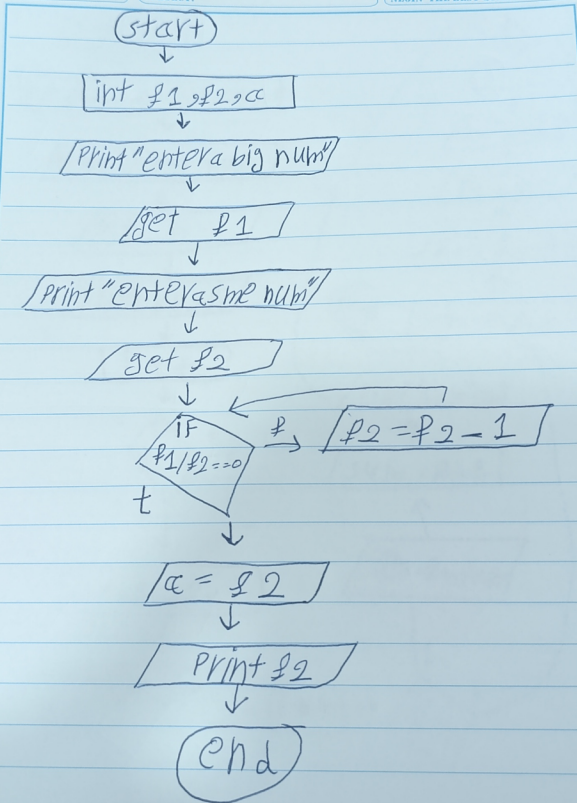 start
int f1,f2,a
Print "enter a big num"
get f1
Print "enter a sme num"
get f2
if
f1/f2==0
f
f2=f2-1
t
a = f2
Print f2
end